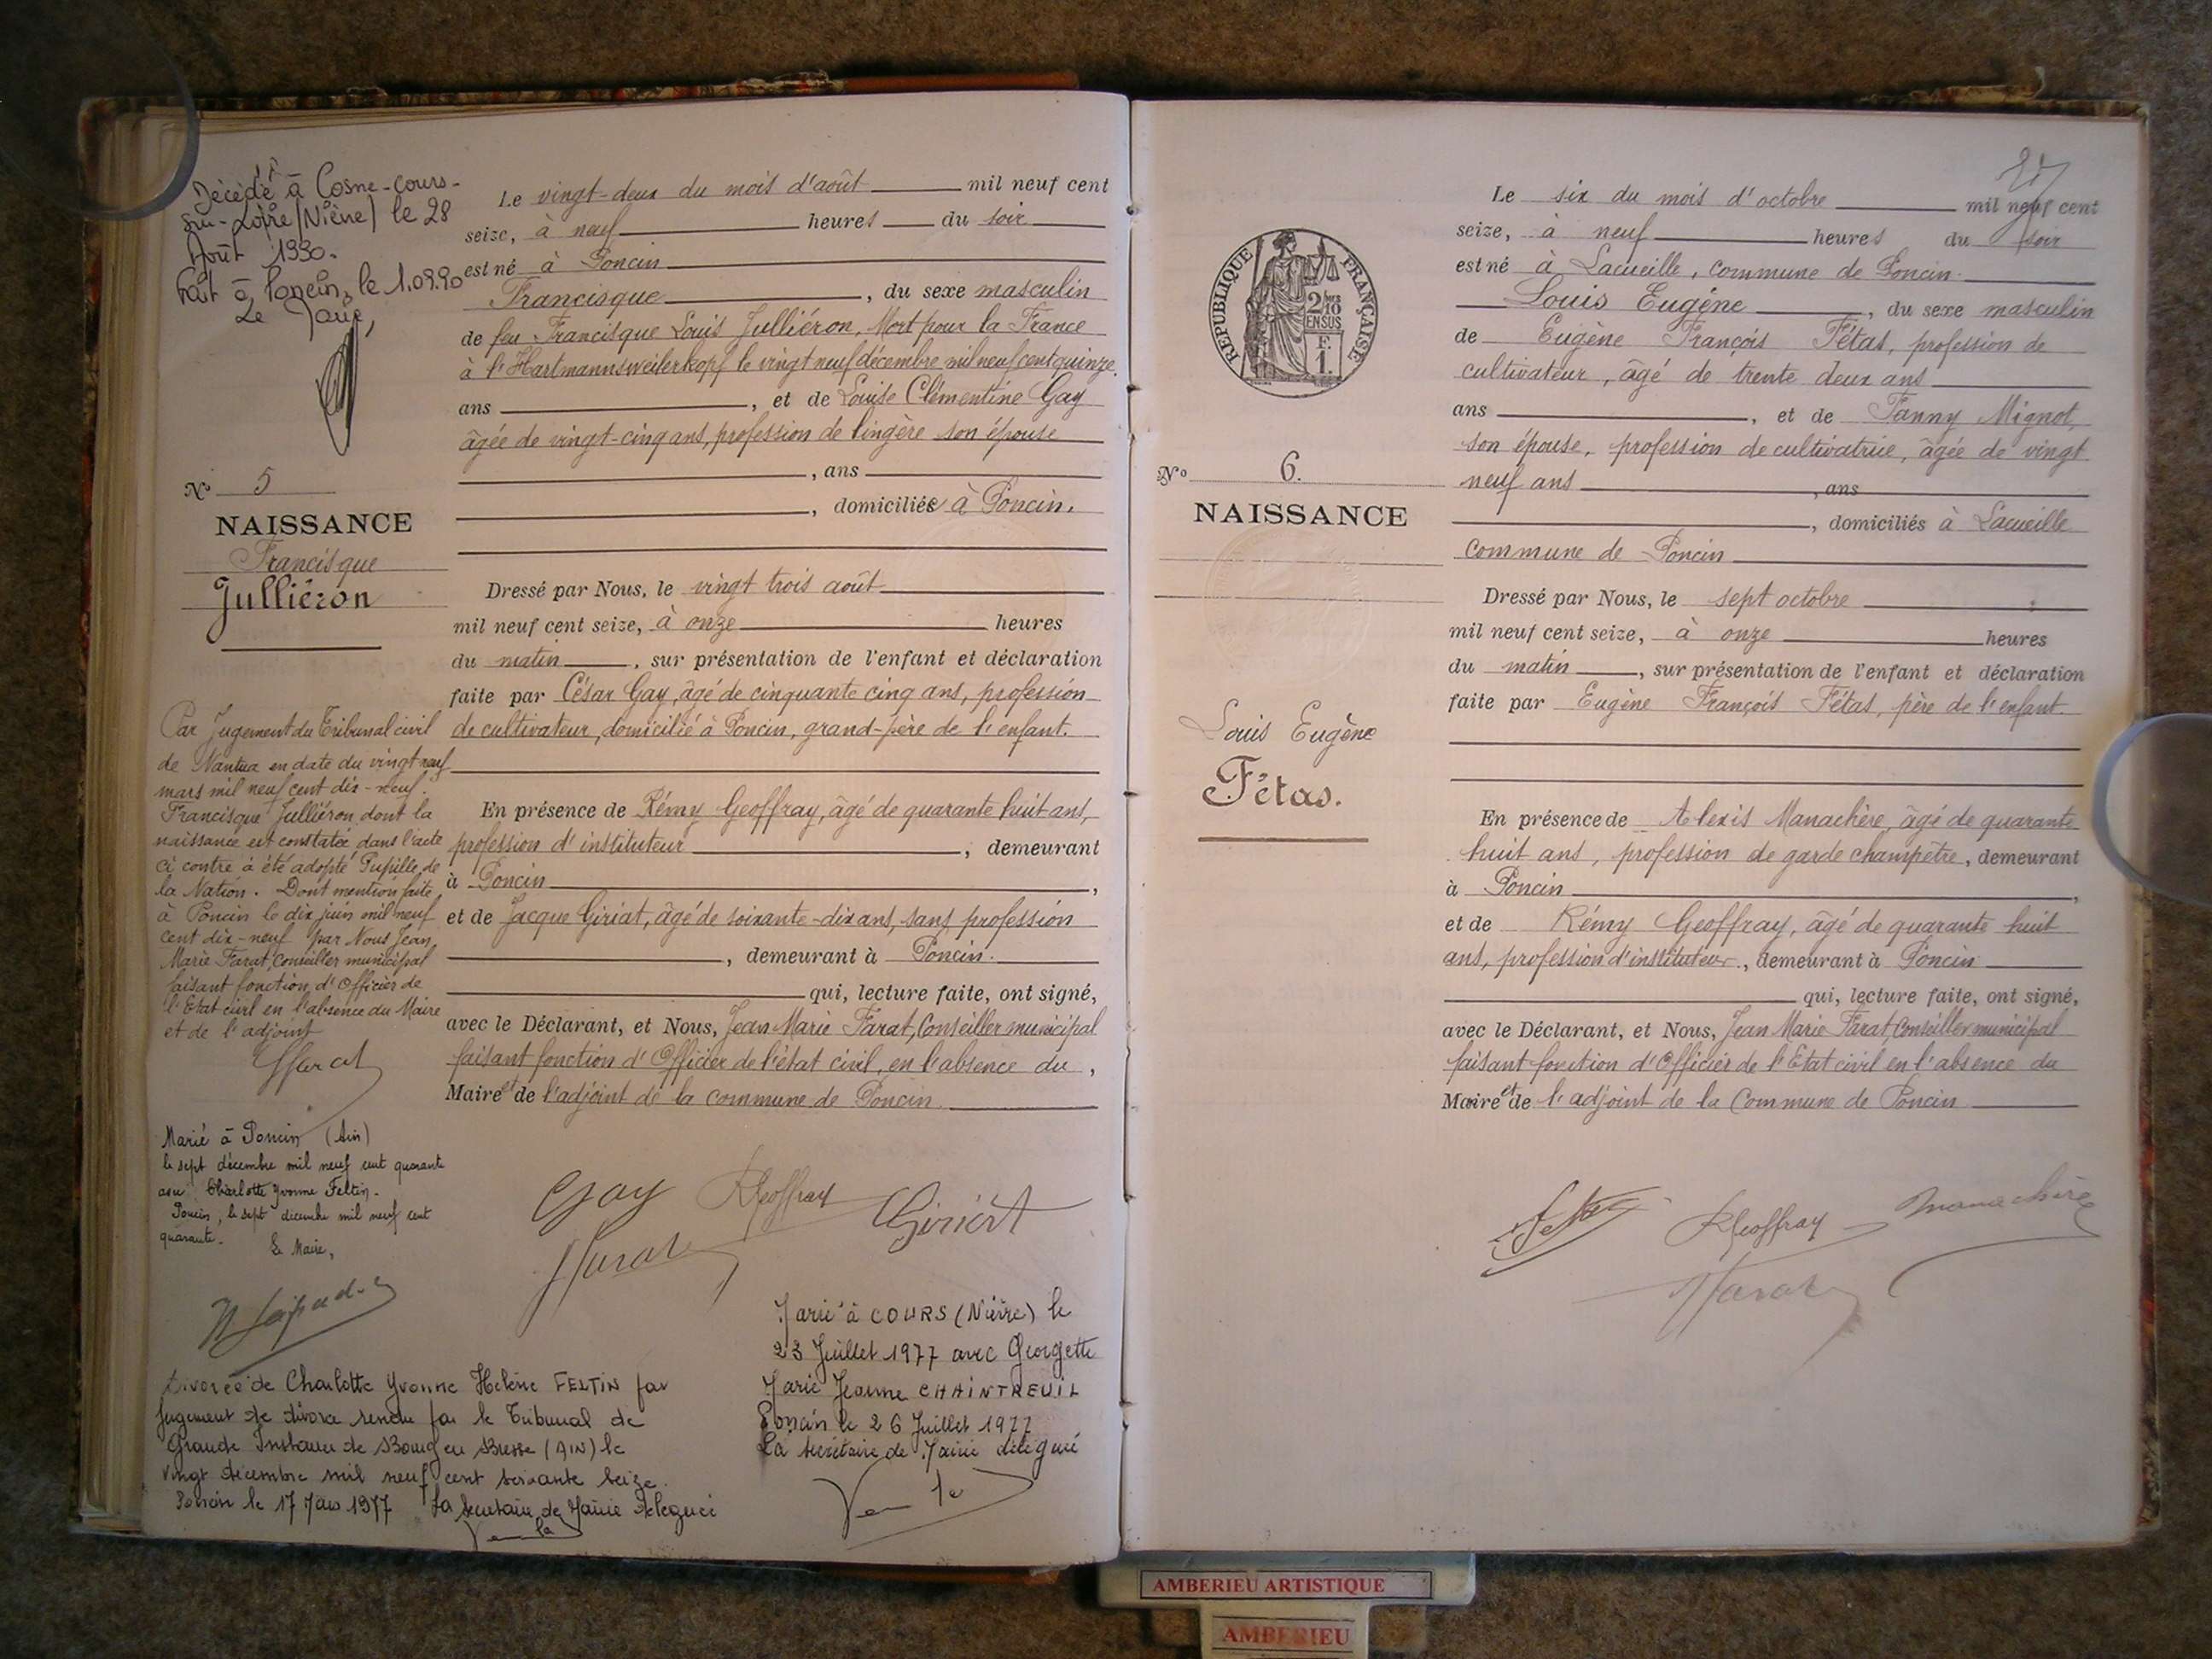 Décédé à Cosne-Cours-
sur-Loire (Nièvre) le 28
Août 1990.
Fait à Poncin, le 1.09.90
Le Maire,
N° 5
NAISSANCE
Francisque
Julliéron
Par Jugement du Tribunal civil
de Nantua en date du vingt neuf
mars mil neuf cent dix-neuf.
Francisque Julliéron dont la
naissance est constatée dans l'acte
ci contre à été adopté Pupille de
la Nation. Dont mention faite
à Poncin le dix juin mil neuf
cent dix-neuf par Nous Jean
Marie Farat, Conseiller municipal
faisant fonction d'Officier de
l'Etat civil en l'absence du Maire
et de l'adjoint
Marié à Poncin (Ain)
le sept décembre mil neuf cent quarante
avec Charlotte Yvonne Feltin.
Poncin, le sept décembre mil neuf cent
quarante.
Le Maire,
Divorcé de Charlotte Yvonne Hélène FELTIN par
Jugement de divorce rendu par le Tribunal de
Grande Instance de Bourg en Bresse (AIN) le
vingt décembre mil neuf cent soixante seize.
Poncin le 17 Mars 1977 La secrétaire de Mairie déléguée
Le vingt-deux du mois d'août mil neuf cent
seize, à neuf heures du soir
est né à Poncin
Francisque, du sexe masculin
de feu Francisque Louis Julliéron, Mort pour la France
à l'Hartmannsweilerkopf le vingt neuf décembre mil neuf cent quinze.
ans, et de Louise Clémentine Gay
âgée de vingt-cinq ans, profession de lingère son épouse
, ans
, domiciliés à Poncin.
Dressé par Nous, le vingt trois août
mil neuf cent seize, à onze heures
du matin, sur présentation de l'enfant et déclaration
faite par César Gay, âgé de cinquante cinq ans, profession
de cultivateur, domicilié à Poncin, grand-père de l'enfant.
En présence de Rémy Geoffray, âgé de quarante huit ans,
profession d'instituteur, demeurant
à Poncin,
et de Jacque Giriat, âgé de soixante-dix ans, sans profession
, demeurant à Poncin.
qui, lecture faite, ont signé,
avec le Déclarant, et Nous, Jean Marie Farat, Conseiller municipal
faisant fonction d'Officier de l'état civil, en l'absence du,
Maire et de l'adjoint de la commune de Poncin
Gay RGeoffray Giriat
Marié à COURS (Nièvre) le
23 Juillet 1977 avec Georgette
Marie Jeanne CHAINTREUIL
Poncin le 26 Juillet 1977
La secrétaire de Mairie délégué
27
RÉPUBLIQUE FRANÇAISE
N° 6.
NAISSANCE
Louis Eugène
Fétas.
Le six du mois d'octobre mil neuf cent
seize, à neuf heures du soir
est né à Lacueille, commune de Poncin
Louis Eugène, du sexe masculin
de Eugène François Fétas, profession de
cultivateur, âgé de trente deux ans
ans, et de Fanny Mignot,
son épouse, profession de cultivatrice, âgée de vingt
neuf ans, ans
, domiciliés à Lacueille
commune de Poncin
Dressé par Nous, le sept octobre
mil neuf cent seize, à onze heures
du matin, sur présentation de l'enfant et déclaration
faite par Eugène François Fétas, père de l'enfant.
En présence de Alexis Manachère, âgé de quarante
huit ans, profession de garde champêtre, demeurant
à Poncin,
et de Rémy Geoffray, âgé de quarante huit
ans, profession d'instituteur, demeurant à Poncin
qui, lecture faite, ont signé,
avec le Déclarant, et Nous, Jean Marie Farat, Conseiller municipal
faisant fonction d'Officier de l'Etat civil en l'absence du
Maire et de l'adjoint de la Commune de Poncin
RGeoffray Manachère
AMBERIEU ARTISTIQUE
AMBERIEU